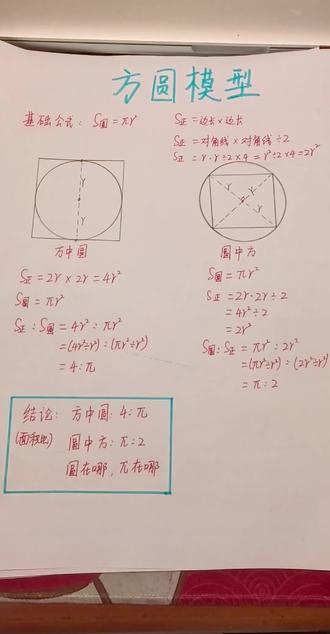 方圆模型
基础公式: S圆=πr²
S正=边长×边长
S正=对角线×对角线÷2
S正=r·r÷2×4=r²÷2×4=2r²
r
r
方中圆
S正=2r×2r=4r²
S圆=πr²
S正:S圆=4r²:πr²
=(4r²÷r²):(πr²÷r²)
=4:π
r
r
r
圆中方
S圆=πr²
S正=2r·2r÷2
=4r²÷2
=2r²
S圆:S正=πr²:2r²
=(πr²÷r²):(2r²÷r²)
=π:2
结论: 方中圆: 4:π
(面积比) 圆中方: π:2
圆在哪, π在哪